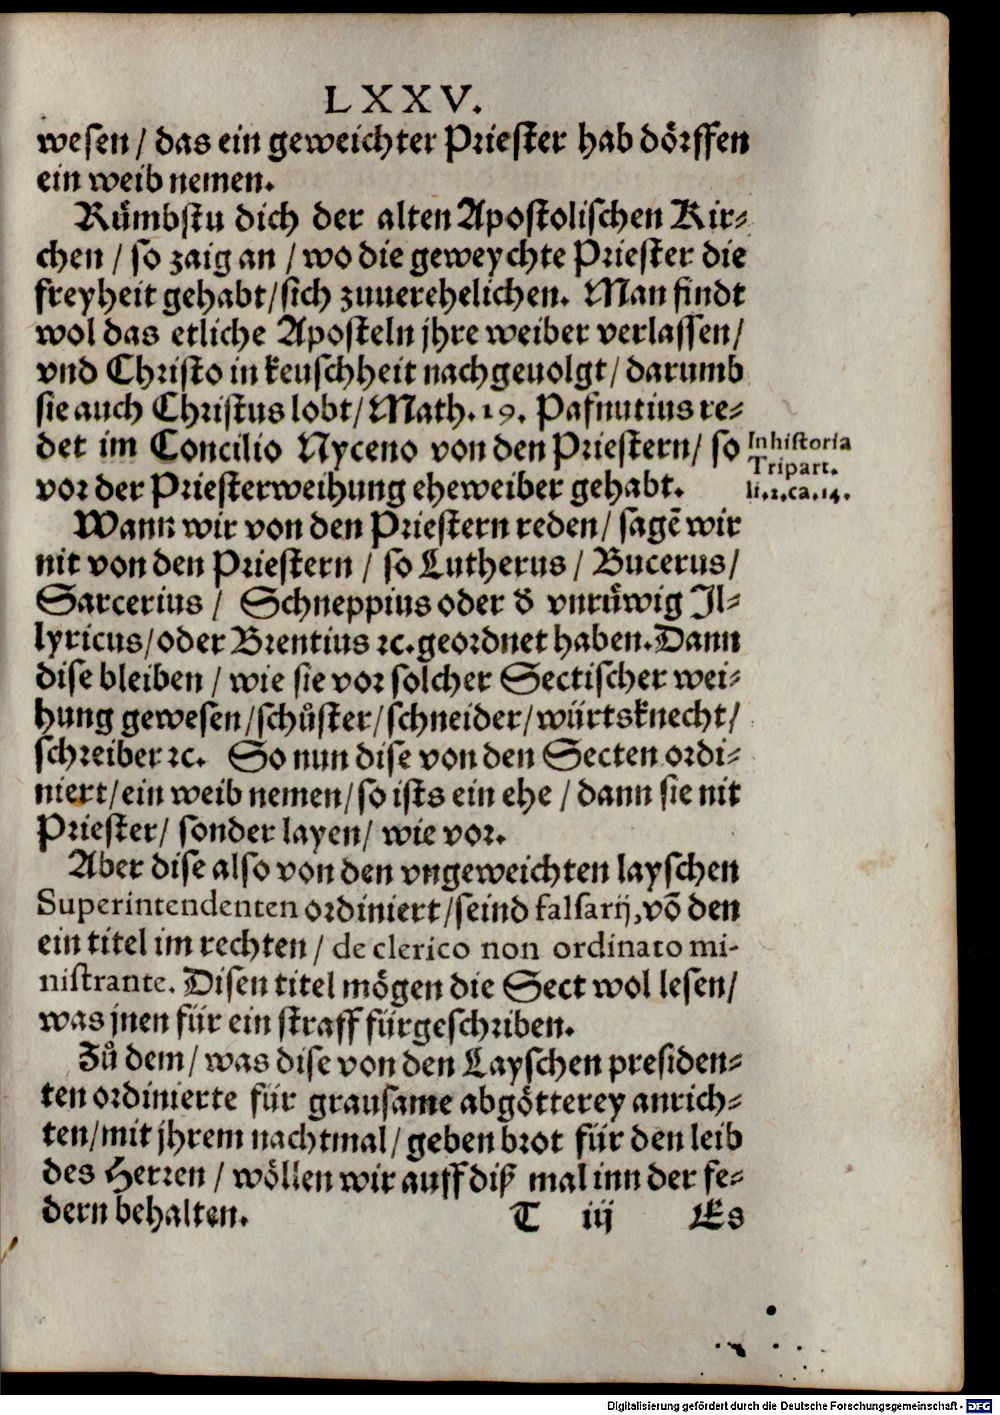 LXXV.
wesen / das ein geweichter Priester hab dörffen
ein weib nemen.
Růmbstu dich der alten Apostolischen Kir-
chen / so zaig an / wo die geweychte Priester die
freyheit gehabt / sich zuuerehelichen. Man findt
wol das etliche Aposteln jhre weiber verlassen /
vnd Christo in keuschheit nachgeuolgt / darumb
sie auch Christus lobt / Math. 19. Pafnutius re-
det im Concilio Nyceno von den Priestern / so
vor der Priesterweihung eheweiber gehabt.
In historia
Tripart.
li.2.ca.14.
Wann wir von den Priestern reden / sagē wir
nit von den Priestern / so Lutherus / Bucerus /
Sarcerius / Schneppius oder d̄ vnrüwig Il-
lyricus / oder Brentius ꝛc. geordnet haben. Dann
dise bleiben / wie sie vor solcher Sectischer wei-
hung gewesen / schůster / schneider / würtsknecht /
schreiber ꝛc. So nun dise von den Secten ordi-
niert / ein weib nemen / so ists ein ehe / dann sie nit
Priester / sonder layen / wie vor.
Aber dise also von den vngeweichten layschen
Superintendenten ordiniert / seind falsarij, vō den
ein titel im rechten / de clerico non ordinato mi-
nistrante. Disen titel mögen die Sect wol lesen /
was jnen für ein straff fürgeschriben.
Zů dem / was dise von den Layschen presiden-
ten ordinierte für grausame abgötterey anrich-
ten / mit jhrem nachtmal / geben brot für den leib
des Herren / wöllen wir auff diß mal inn der fe-
dern behalten.
T iij Es
Digitalisierung gefördert durch die Deutsche Forschungsgemeinschaft - DFG